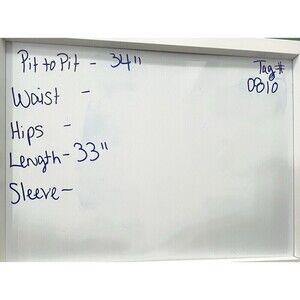 Pit to Pit - 34"
Tag #
0810
Waist -
Hips -
Length - 33"
Sleeve -